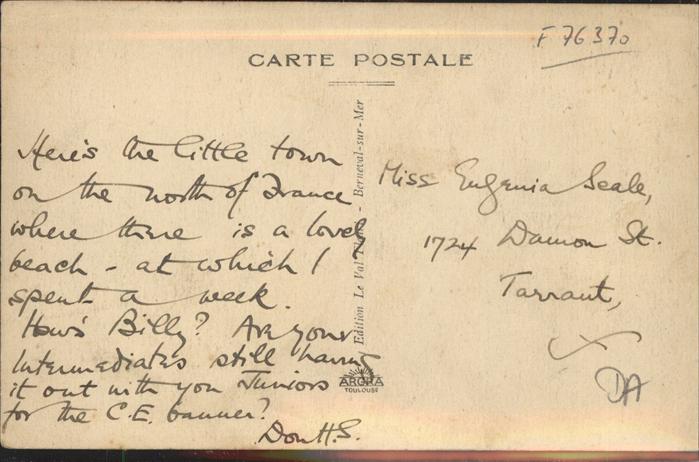 F 76370
CARTE POSTALE
Here's the little town
on the north of France
where there is a lovely
beach - at which I
spent a week.
How's Billy? Are your
Intermediates still having
it out with you Juniors
for the C.E. banner?
Don H.S.
Edition Le Val - Berneval-sur-Mer
ARORA
TOULOUSE
Miss Eugenia Seale,
1724 Damon St.
Tarrant,
DA